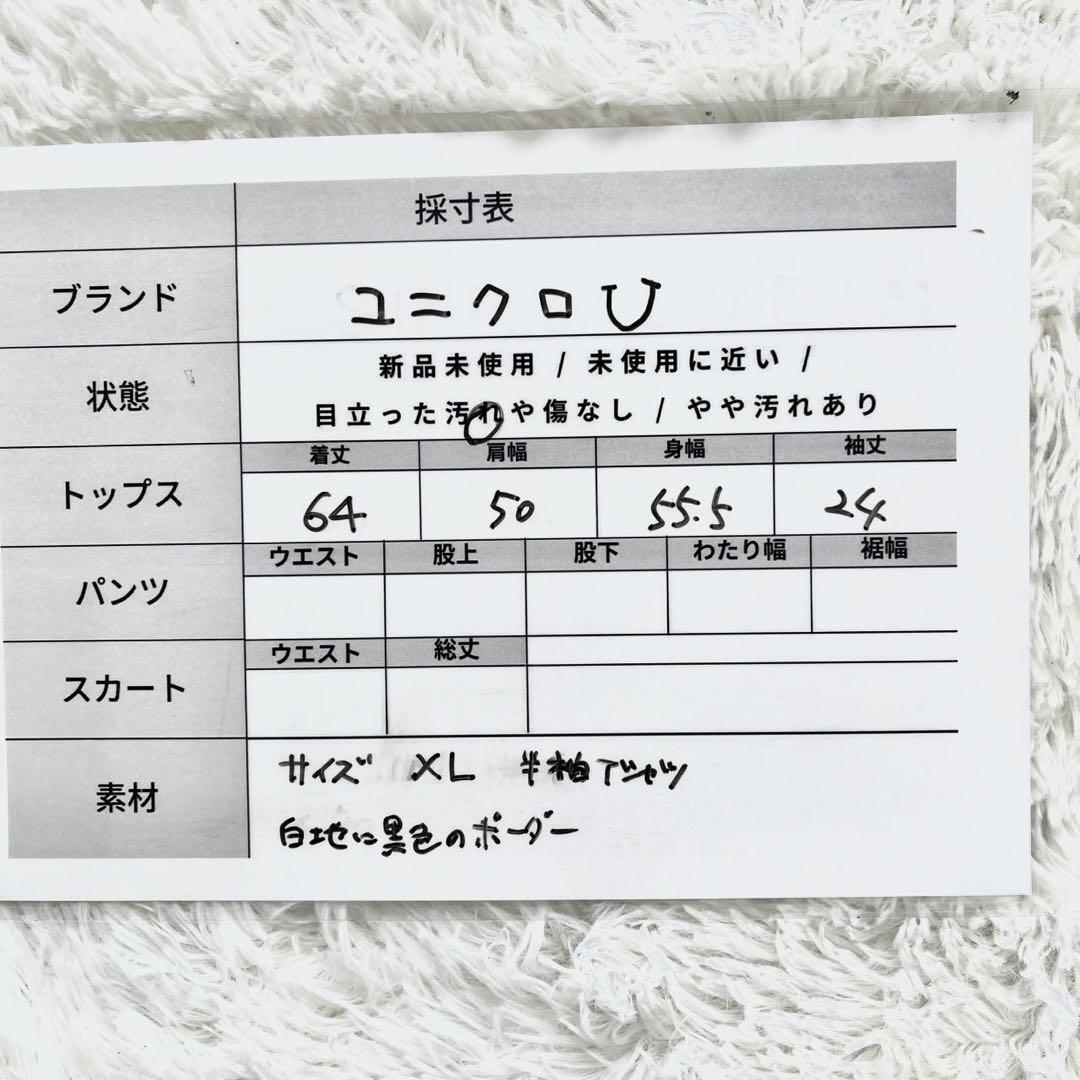 採寸表
ブランド ユニクロU
状態 新品未使用 / 未使用に近い /
目立った汚れや傷なし / やや汚れあり
トップス 着丈 肩幅 身幅 袖丈
64 50 55.5 24
パンツ ウエスト 股上 股下 わたり幅 裾幅
スカート ウエスト 総丈
素材 サイズ XL 半袖Tシャツ
白地に黒色のボーダー